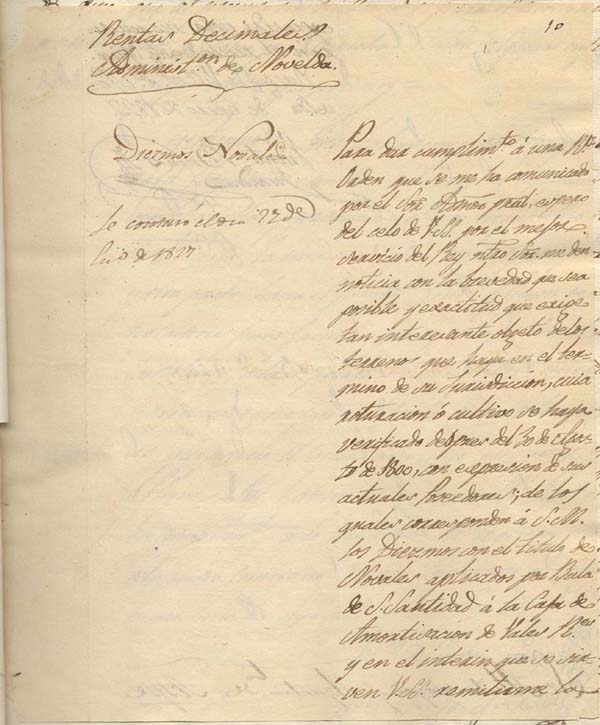 10
Rentas Decimales
Administ.on de Novelda.
Diezmos Novales
Se contextó el dia 22 de
de 1827
Para dar cumplim.to á una R.l
Orden que se me ha comunicado
por el Sor. Admor gral, espero
del celo de V.SS. por el mejor
servicio del Rey ntro Sor. me den
noticia con la brevedad que sea
posible y exactitud que exige
tan interesante objeto de los
terrenos que haya en el ter-
mino de su Jurisdicion, cuia
roturacion ó cultivo se haya
verificado despues del 30 de Agos-
to de 1800, con expresion de sus
actuales Poseedores; de los
quales corresponden á S.M.
los Diezmos con el titulo de
Novales aplicados por Bula
de S. Santidad á la Caja de
Amortizacion de Vales R.es
y en el interin que se sir-
ven V.SS. remitirme los